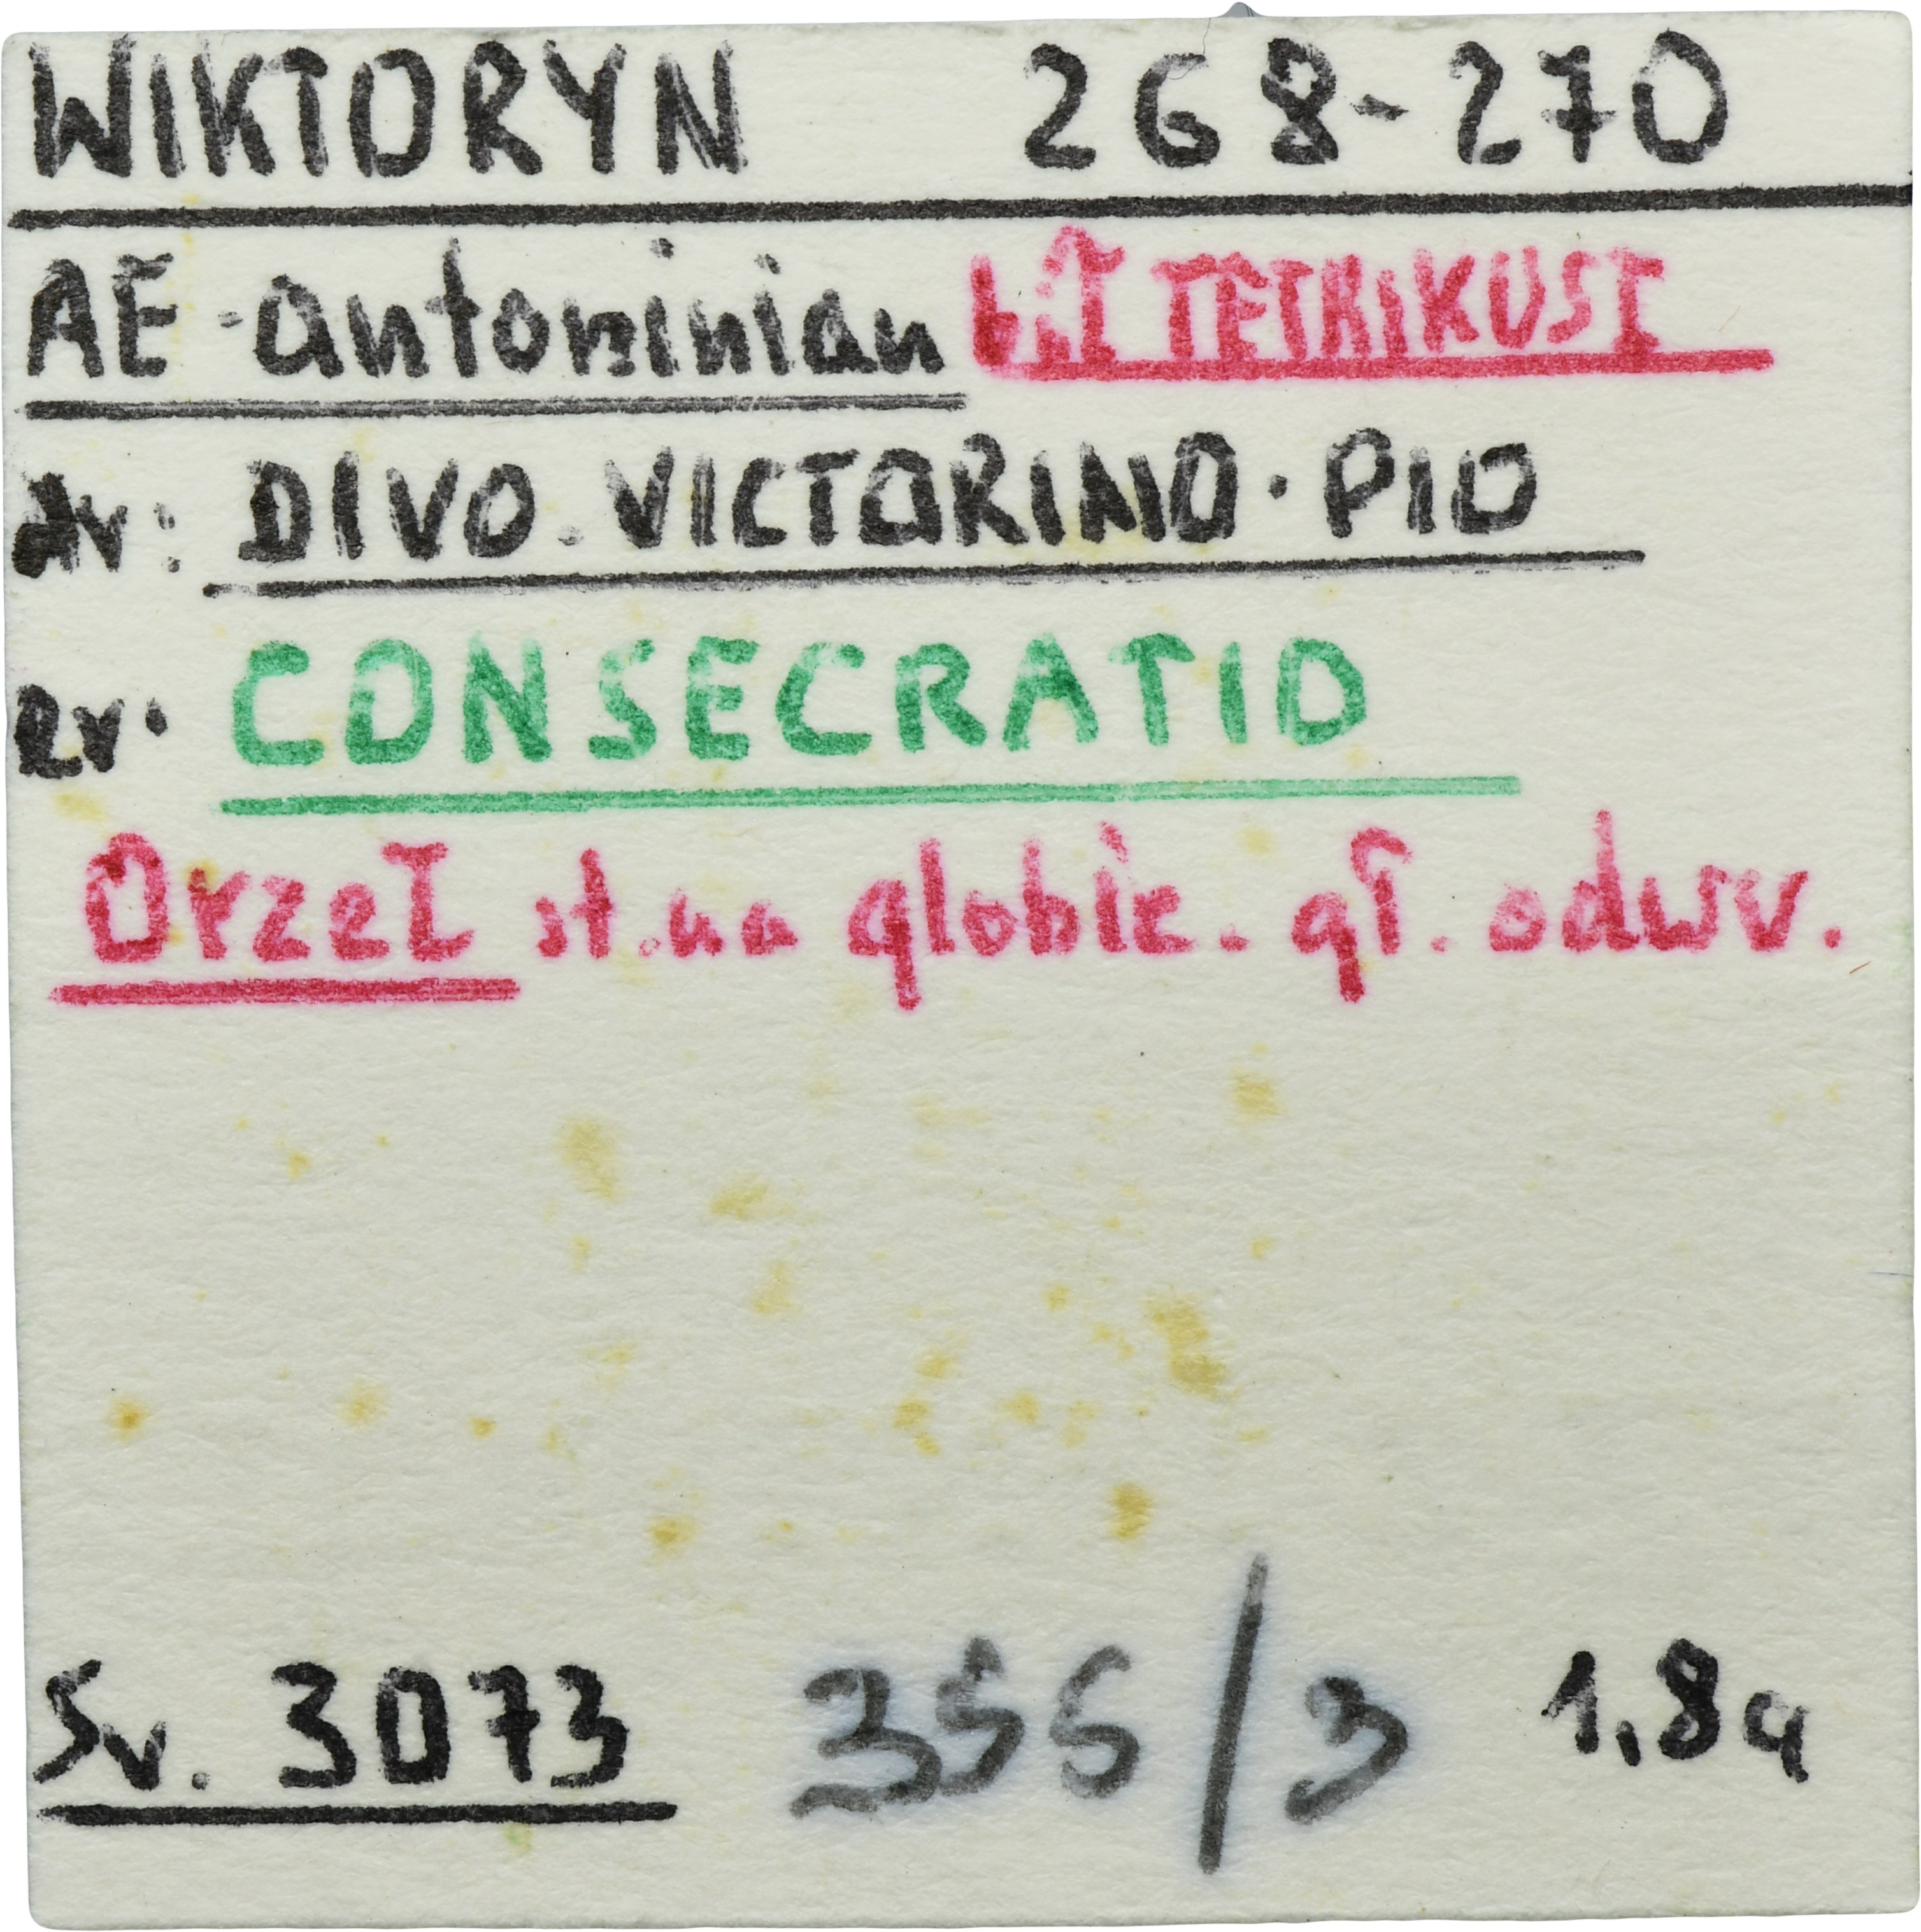 WIKTORYN 268-270
AE-antoninian bił TETRIKUS I
Av: DIVO.VICTORINO.PIO
Rv. CONSECRATIO
Orzeł st.na globie. gł. odwr.
Sv. 3073 355/3 1,8g